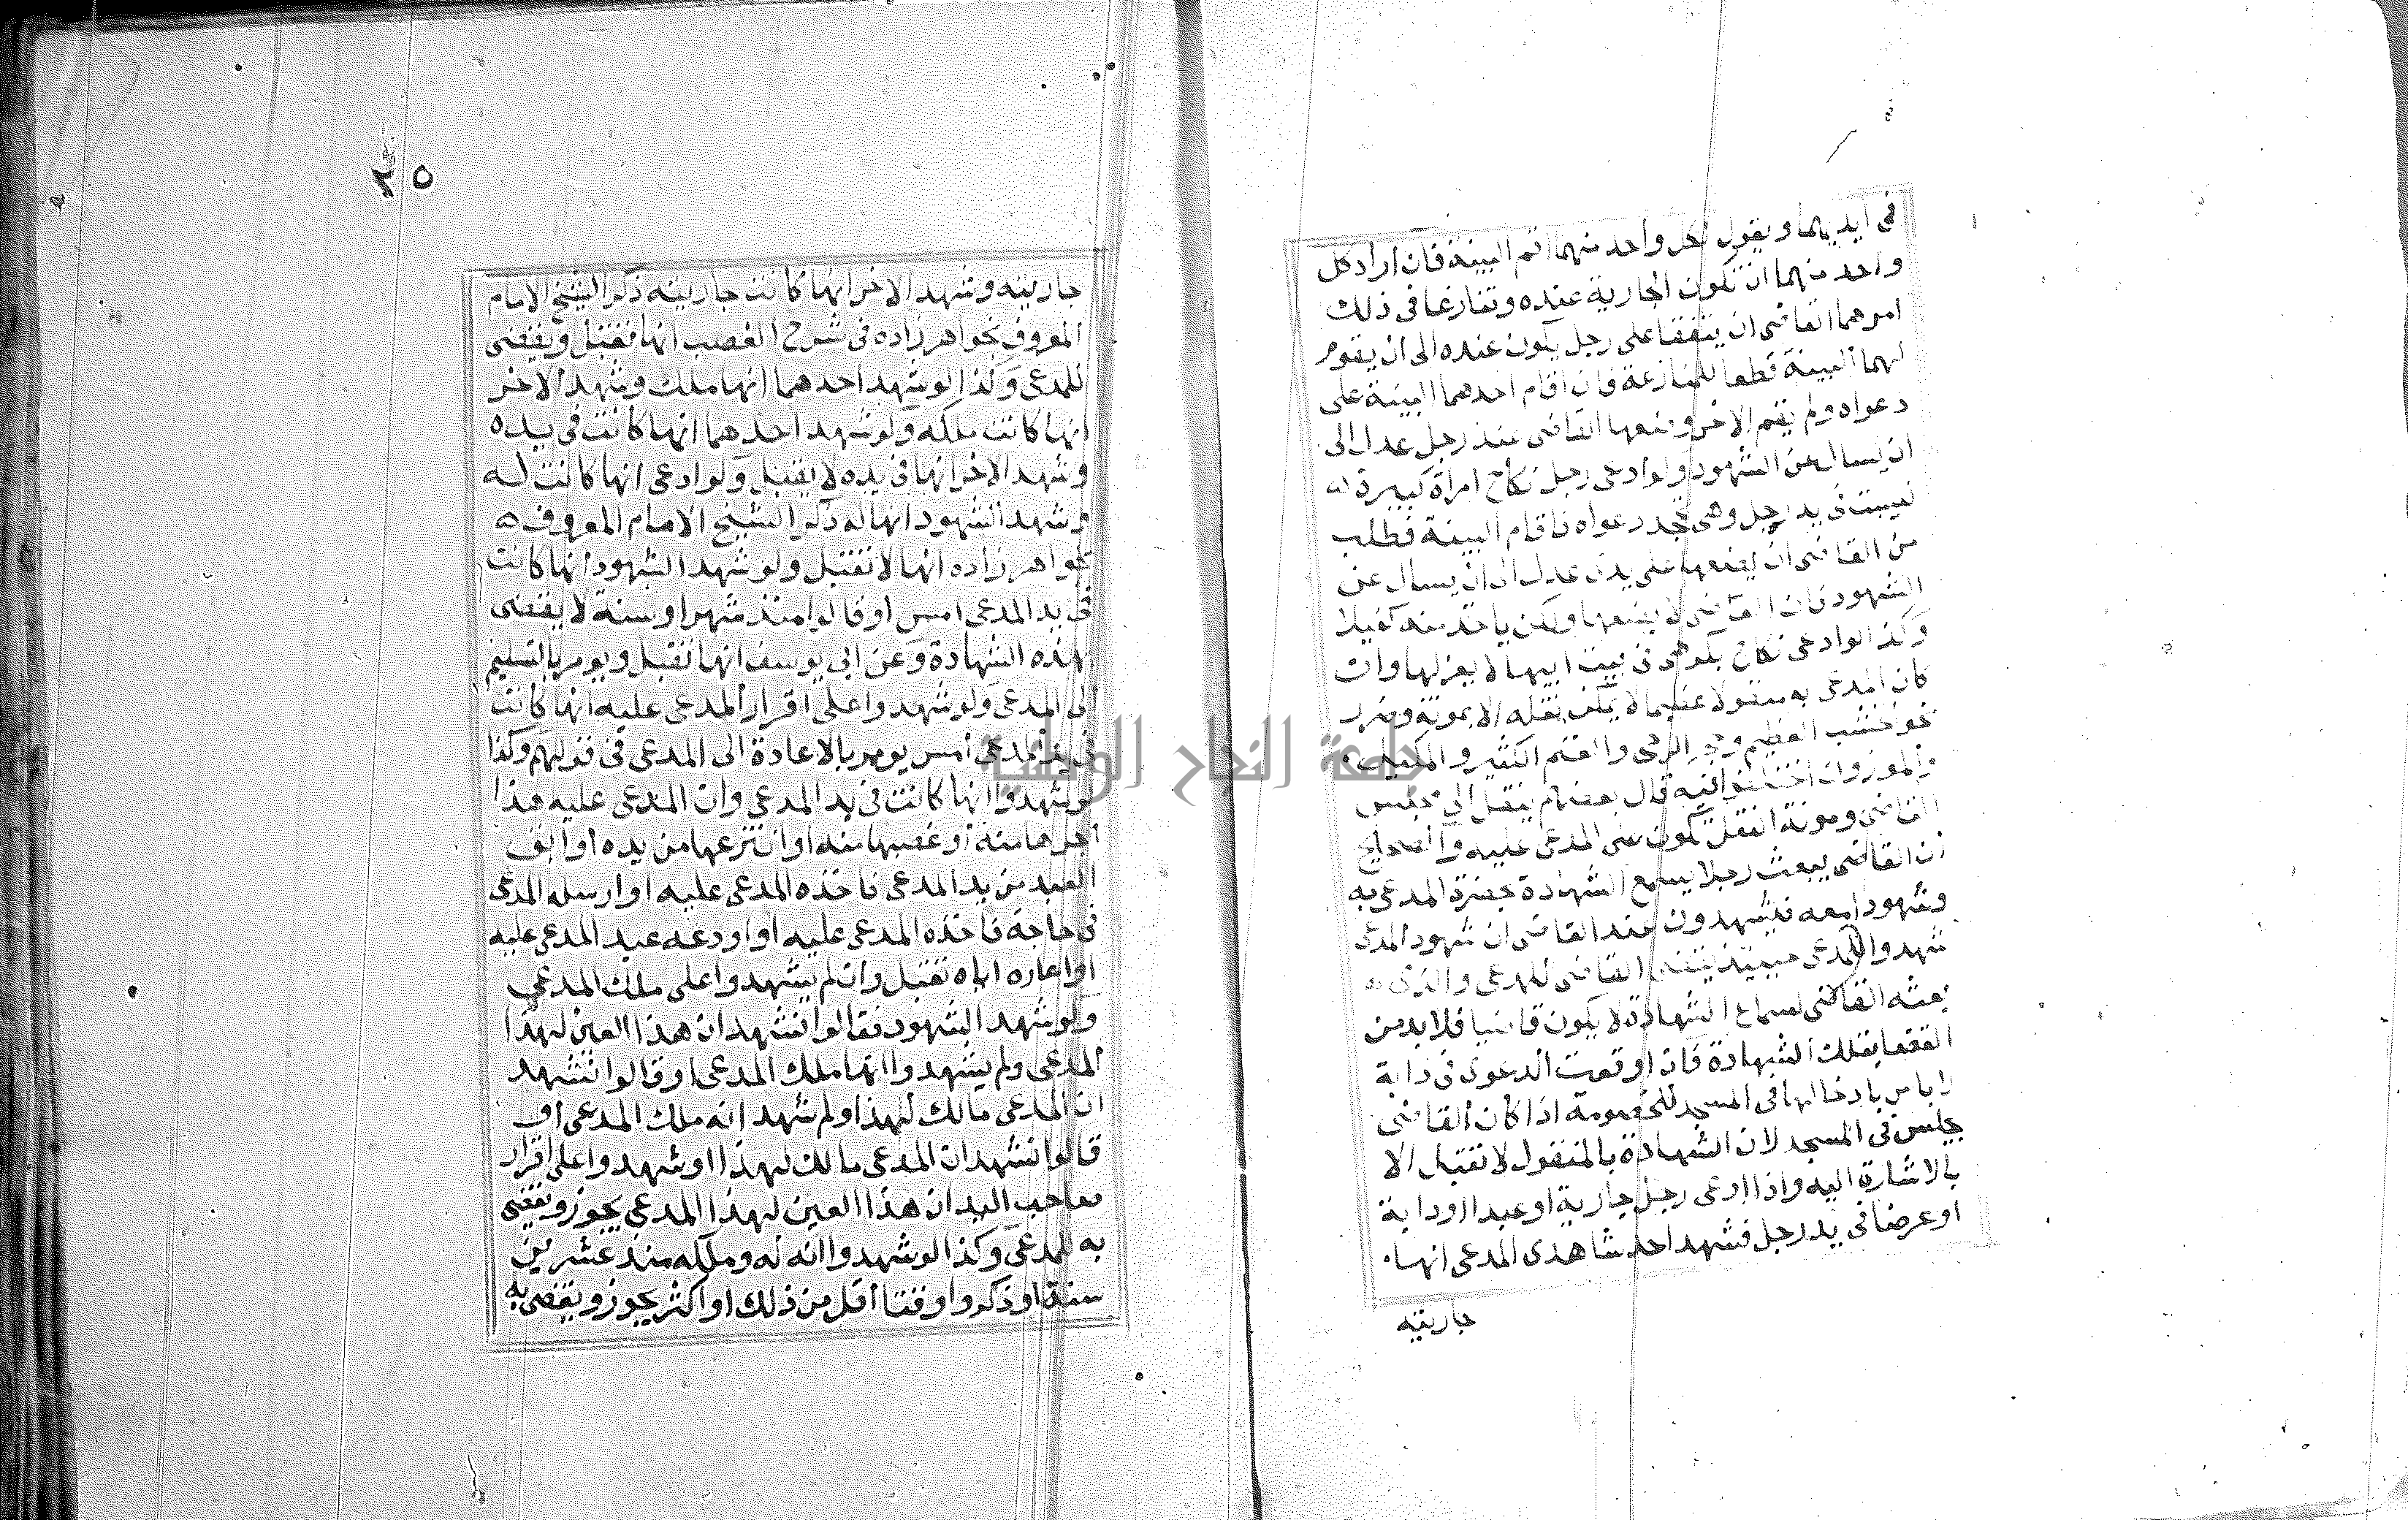 في ايديهما ويقول لكل واحد منهما اقم البينة فان اراد كل
واحد منهما ان تكون الجارية عنده وتنازعا في ذلك
امرهما القاضي ان يتفقا على رجل يكون عنده الى ان يقوم
لهما البينة قطعا للمنازعة فان اقام احدهما البينة على
دعواه ولم يقم الاخر وضعها القاضي عند رجل عدل الى
ان يسال عن الشهود ولو ادعى رجل نكاح امراة كبيرة
ليست في يد رجل وهي تجحد دعواه فاقام البينة فطلب
من القاضي ان يضعها على يدي عدل الى ان يسال عن
الشهود فان القاضي لا يضعها ولكن ياخذ منه كفيلا
وكذا لو ادعى نكاح بكر هي في بيت ابيها لا يعزلها وان
كان المدعى به منقولا عظيما لا يمكن نقله الا بمونة وضرر
نحو خشب العظيم وحجر الرحى والغنم الكثير والمكيل
والموزون اختلفوا فيه قال بعضهم ينقل الى مجلس
القاضي ومونة النقل تكون على المدعى عليه والصحيح
ان القاضي يبعث رجلا يسمع الشهادة بحضرة المدعى به
وشهودا معه فيشهدون عند القاضي ان شهود المدعي
شهدوا للمدعي حينئذ يقضي القاضي للمدعي والذي
بعثه القاضي لسماع الشهادة لا يكون قاضيا فلا بد من
القضا بتلك الشهادة فان وقعت الدعوى في دابة
لا باس بادخالها في المسجد للخصومة اذا كان القاضي
يجلس في المسجد لان الشهادة بالمنقول لا تقبل الا
بالاشارة اليه واذا ادعى رجل جارية او عبدا او دابة
او عرضا في يد رجل فشهد احد شاهدي المدعي انها
جاريته
٢٥
جاريته وشهد الاخر انها كانت جاريته ذكر الشيخ الامام
المعروف بخواهر زاده في شرح الغصب انها تقبل ويقضى
للمدعي وكذا لو شهد احدهما انها ملك وشهد الاخر
انها كانت ملكه ولو شهد احدهما انها كانت في يده
وشهد الاخر انها في يده لا يقبل ولو ادعى انها كانت له
وشهد الشهود انها له ذكر الشيخ الامام المعروف
بخواهر زاده انها لا تقبل ولو شهد الشهود انها كانت
في يد المدعي امس او قالوا منذ شهر او سنة لا يقضى
بهذه الشهادة وعن ابي يوسف انها تقبل ويومر بالتسليم
الى المدعي ولو شهدوا على اقرار المدعى عليه انها كانت
في يد المدعي امس يومر بالاعادة الى المدعي في قولهم وكذا
لو شهدوا انها كانت في يد المدعي وان المدعى عليه هذا
اجرها منه او غصبها منه او انتزعها من يده او ابق
العبد من يد المدعي فاخذه المدعى عليه او ارسله المدعي
في حاجة فاخذه المدعى عليه او اودعه عبد المدعى عليه
او اعاره اياه تقبل وان لم يشهدوا على ملك المدعي
ولو شهد الشهود فقالوا نشهد ان هذا العين لهذا
المدعي ولم يشهدوا انها ملك المدعي او قالوا نشهد
ان المدعي مالك لهذا ولم شهد انه ملك المدعي او
قالوا نشهد ان المدعي مالك لهذا او شهدوا على اقرار
صاحب اليد ان هذا العين لهذا المدعي يجوز ويقضى
به للمدعي وكذا لو شهدوا انه له وملكه منذ عشرين
سنة او ذكروا وقتا اقل من ذلك او اكثر يجوز ويقضى به
جامعة النجاح الوطنية